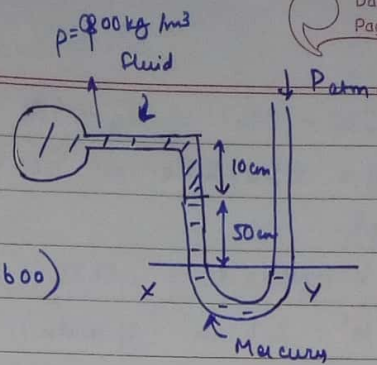 Da
Pa
ρ= 900 kg/m³
fluid
Patm
10cm
50cm
600)
X
Y
Mercury